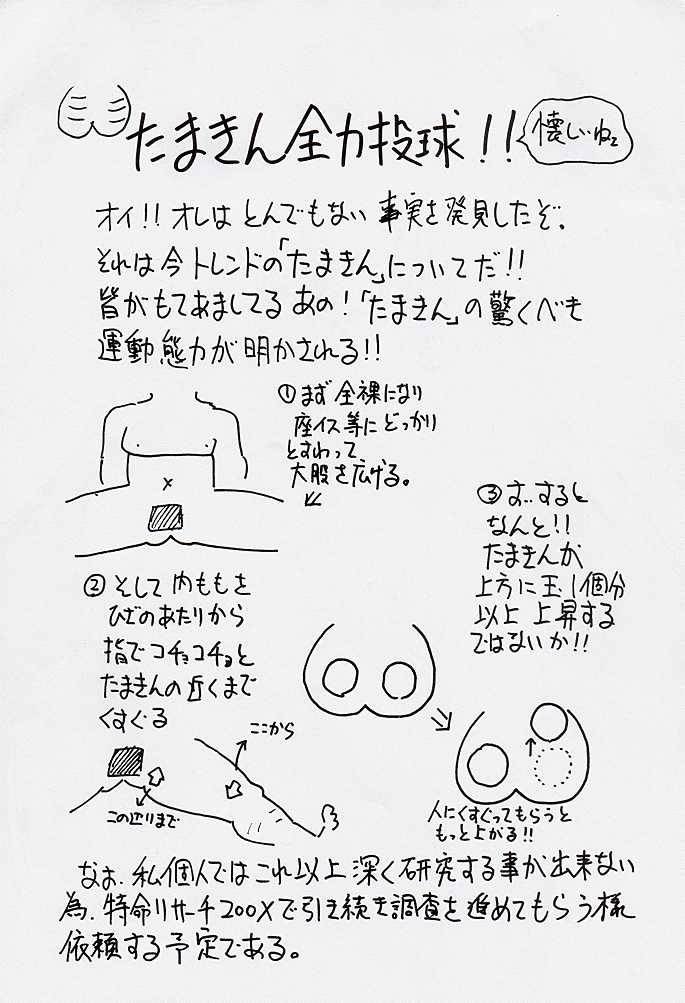 たまきん全力投球!!
懐しいねェ
オイ!! オレは とんでもない 事実を発見したぞ。
それは今トレンドの「たまきん」についてだ!!
皆がもてあましてる あの!「たまきん」の驚くべき
運動態力が明かされる!!
①まず全裸になり
座イス等にどっかり
とすわって、
大股を広げる。
②そして内ももを
ひざのあたりから
指でコチョコチョと
たまきんの近くまで
くすぐる
ここから
この辺りまで
③す、すると
なんと!!
たまきんが
上方に玉1個分
以上上昇する
ではないか!!
人にくすぐってもらうと
もっと上がる!!
なお、私個人ではこれ以上深く研究する事が出来ない
為、特命リサーチ200Xで引き続き調査を進めてもらう様
依頼する予定である。